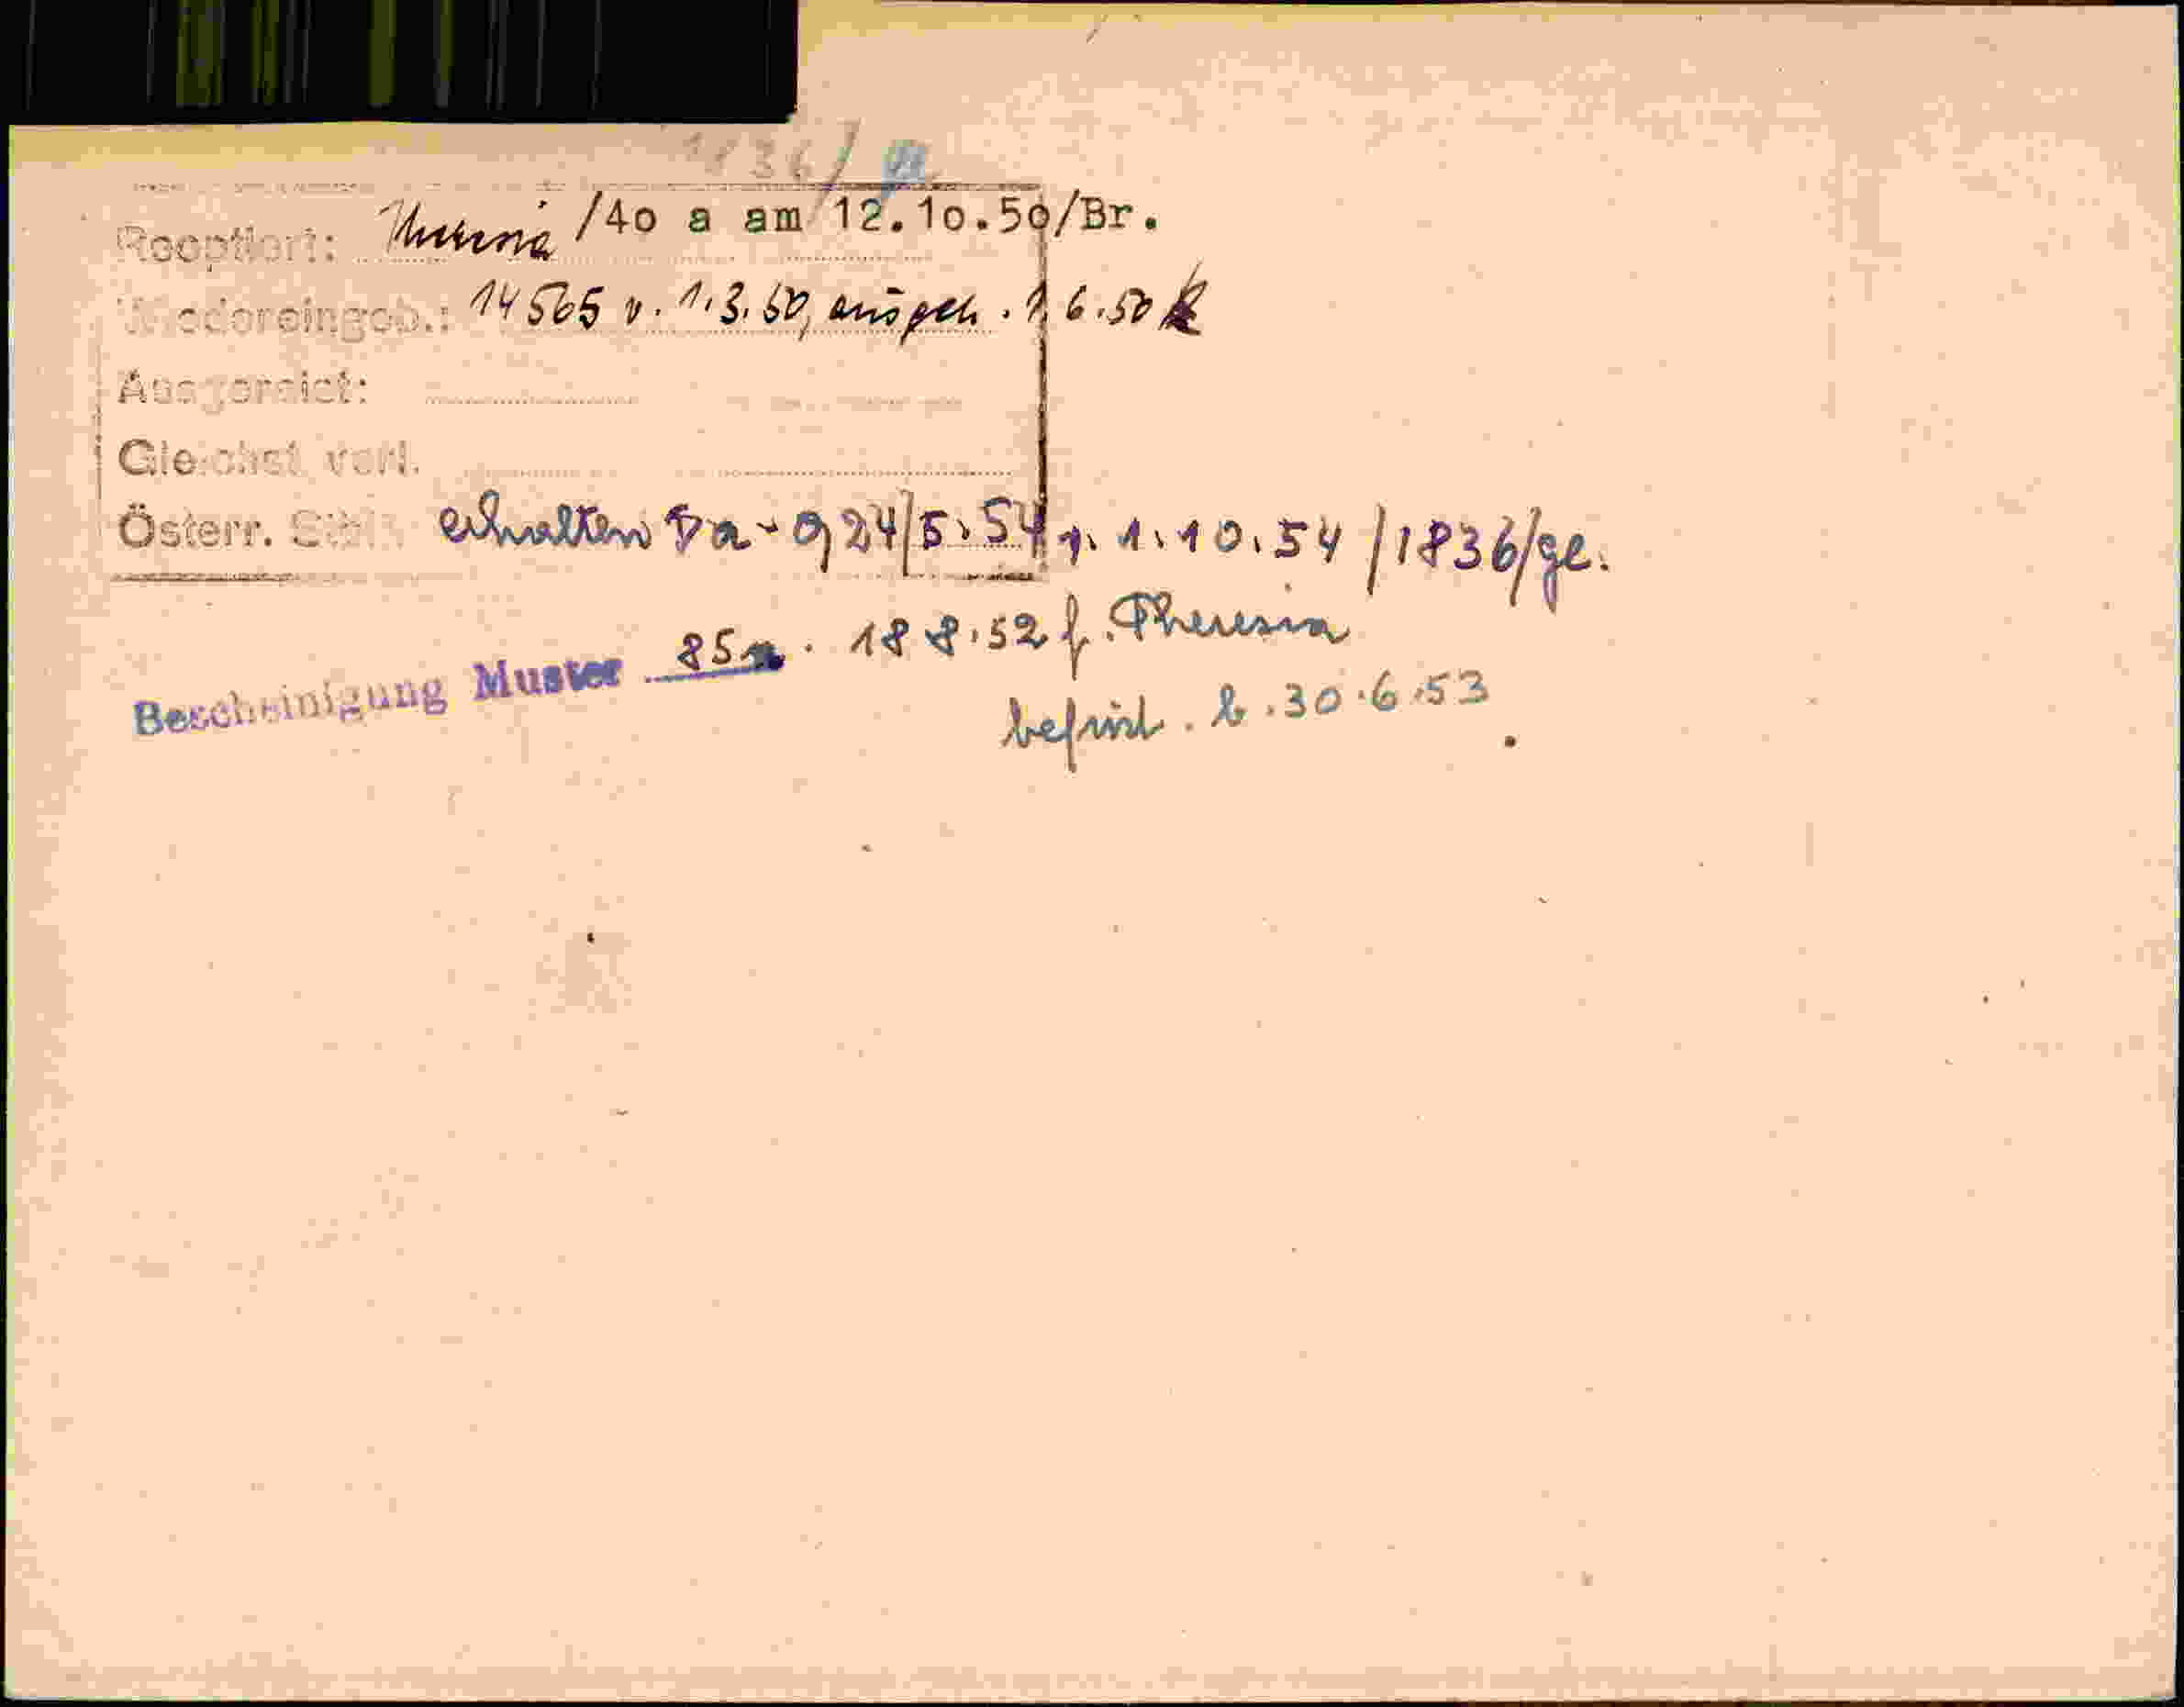 1836/
Reoptiert: Theresia /4o a am 12.1o.5o/Br.
Wiedereingeb.: 14565 v. 1.3.50, ausgeh. 1.6.50
Ausgereist:
Gleichst verl.
Österr. Stb. erhalten Da-924/5.54 v. 1.10.54/1836/ge.
Bescheinigung Muster 85a. 18 8.52 f. Theresia
befrist. b. 30.6.53